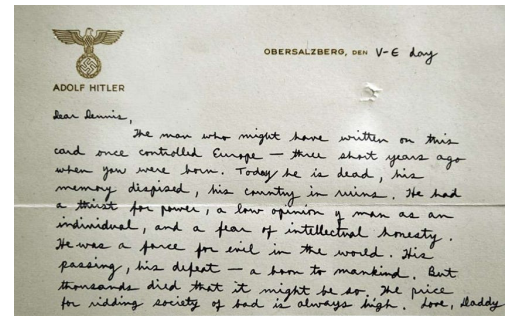 OBERSALZBERG, DEN V-E day
ADOLF HITLER
Dear Dennis,
The man who might have written on this
card once controlled Europe — three short years ago
when you were born. Today he is dead, his
memory despised, his country in ruins. He had
a thirst for power, a low opinion of man as an
individual, and a fear of intellectual honesty.
He was a force for evil in the world. His
passing, his defeat — a boon to mankind. But
thousands died that it might be so. The price
for ridding society of bad is always high. Love, Daddy